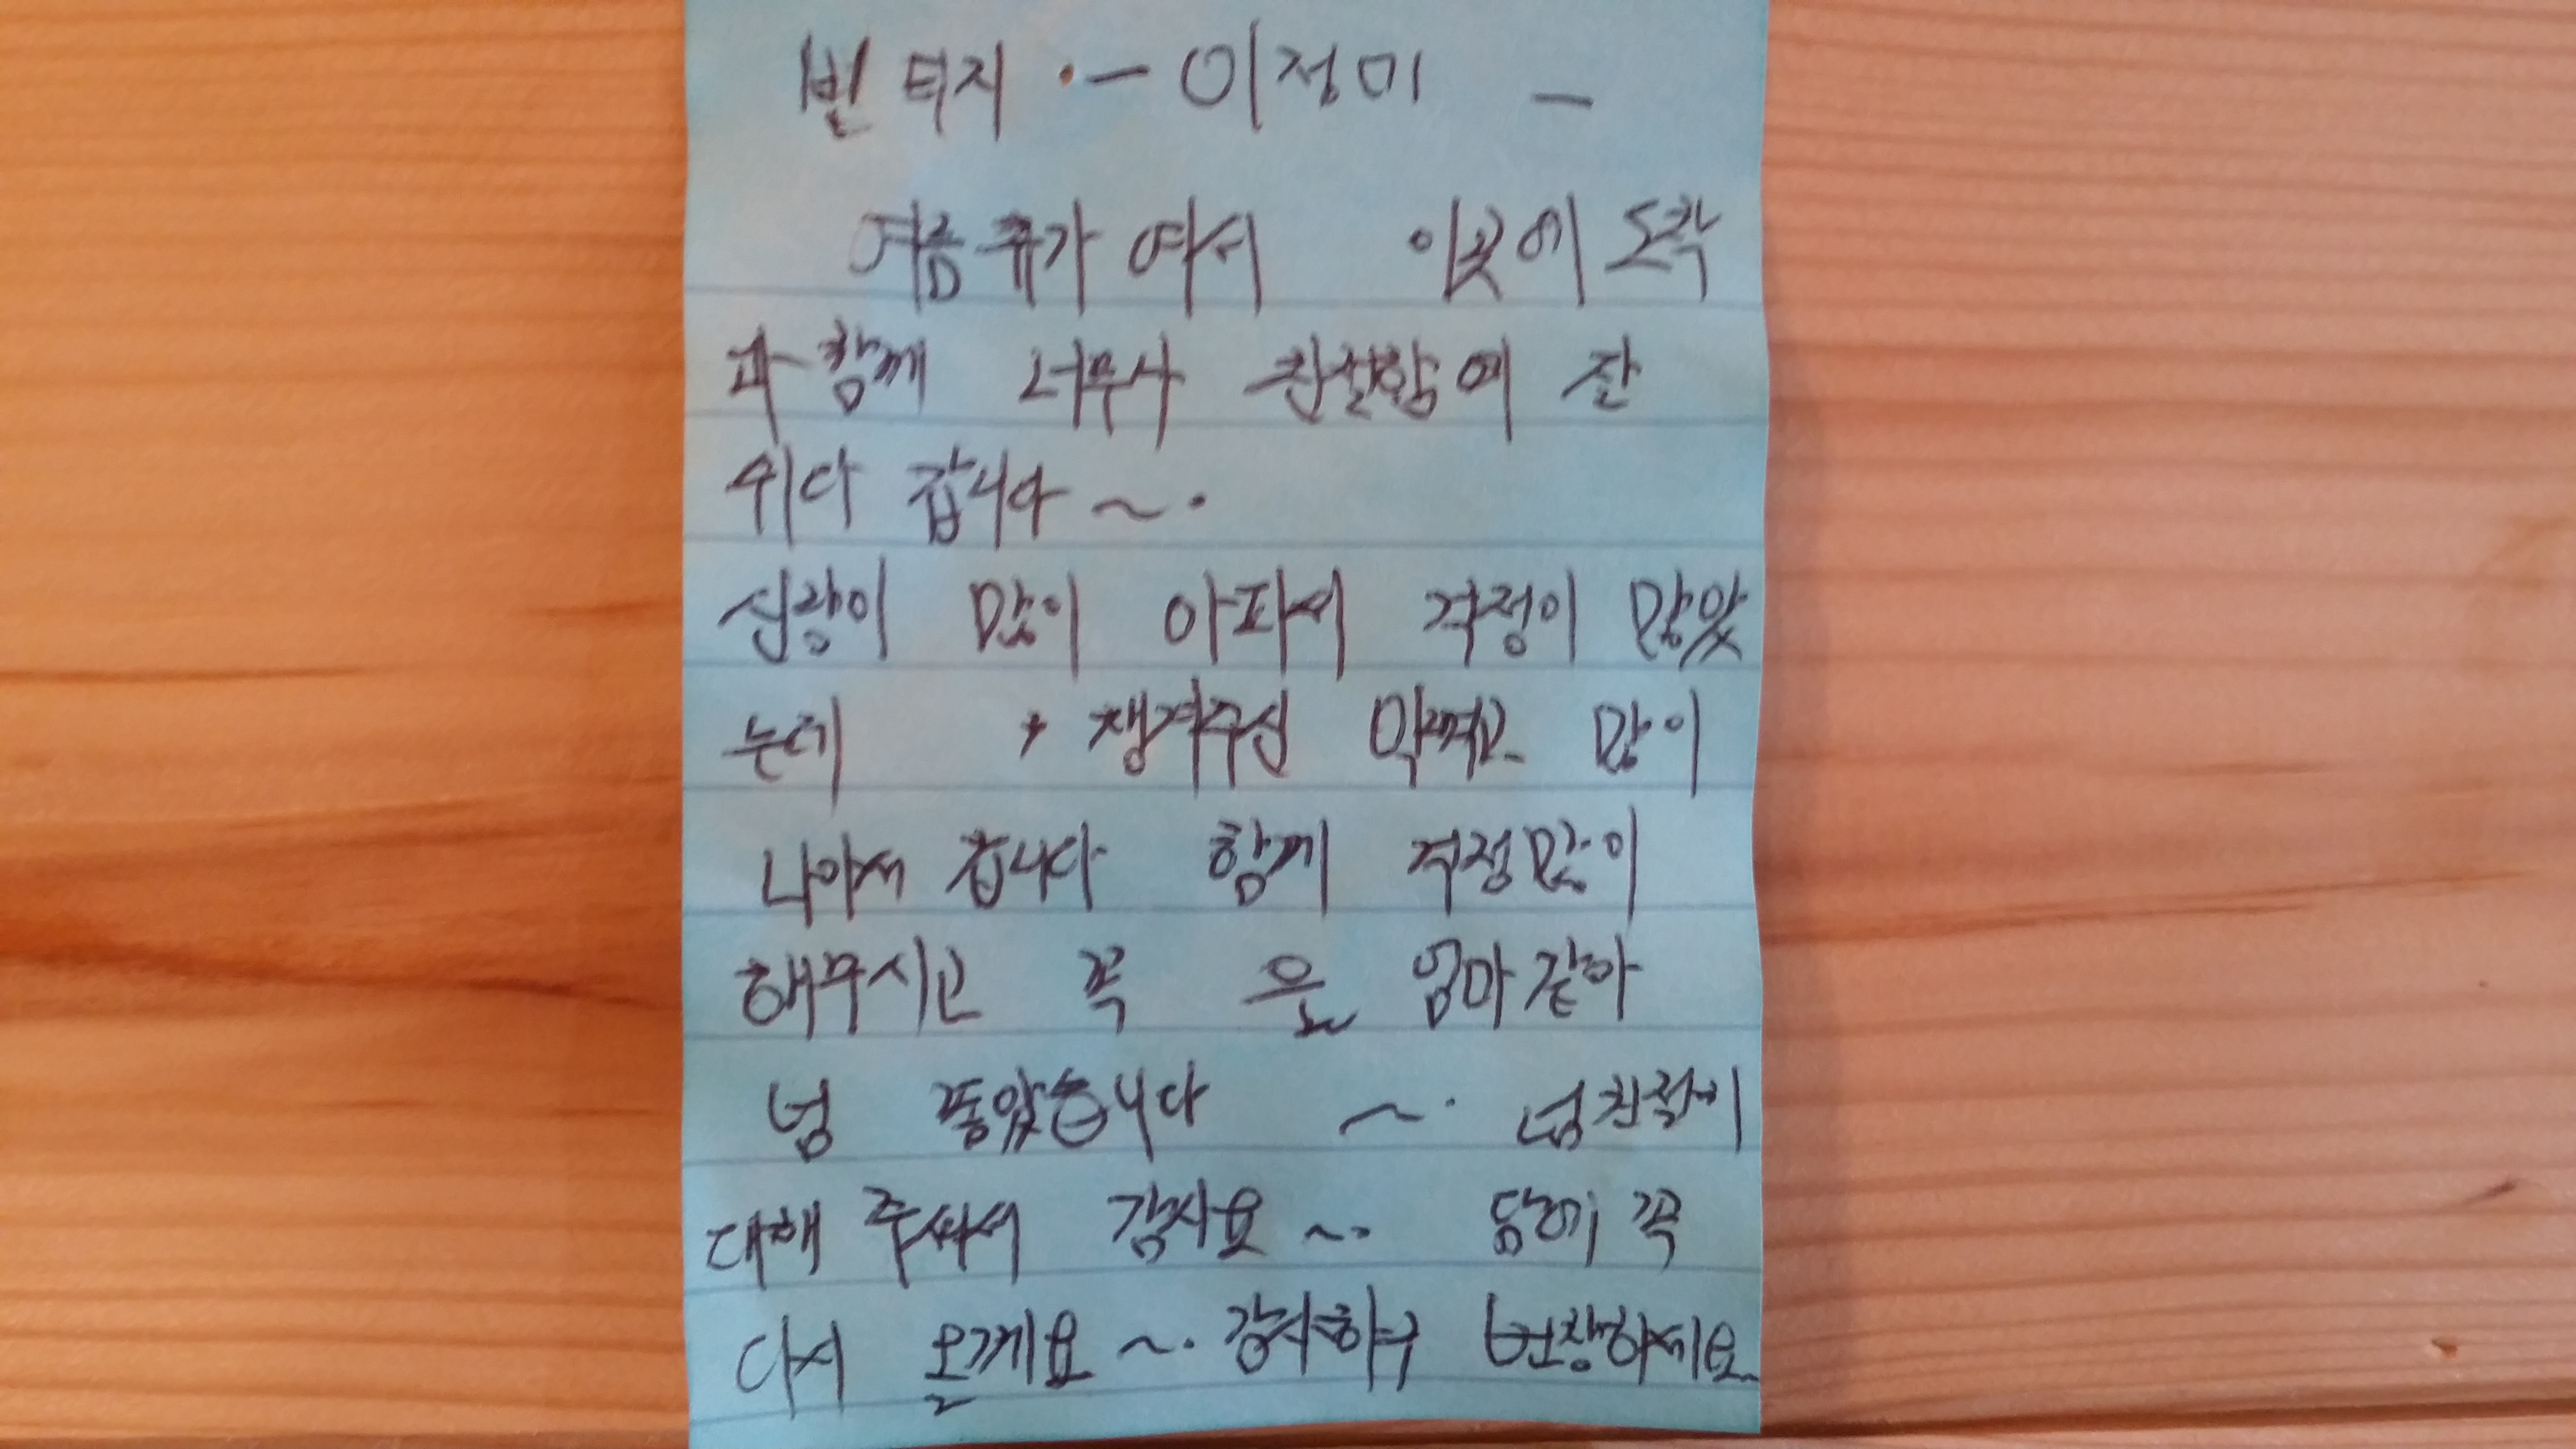 빈티지 - 이정미 -
여름휴가 여서 이곳에 도착
과 함께 너무나 친절함에 잘
쉬다 갑니다 ~.
신랑이 많이 아파서 걱정이 많았
는데 챙겨주신 약먹고 많이
나아서 갑니다 함께 걱정많이
해주시고 꼭 은 엄마같아
넘 좋았습니다 ~. 넘친절이
대해 주셔서 감사요 ~. 담에 꼭
다시 올게요 ~. 감사하구 번창하세요